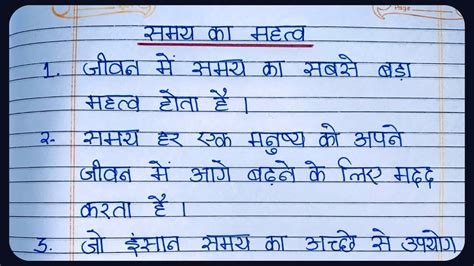 समय का महत्व
1. जीवन में समय का सबसे बड़ा
महत्व होता है ।
2. समय हर एक मनुष्य को अपने
जीवन में आगे बढ़ने के लिए मदद
करता है ।
3. जो इंसान समय का अच्छे से उपयोग